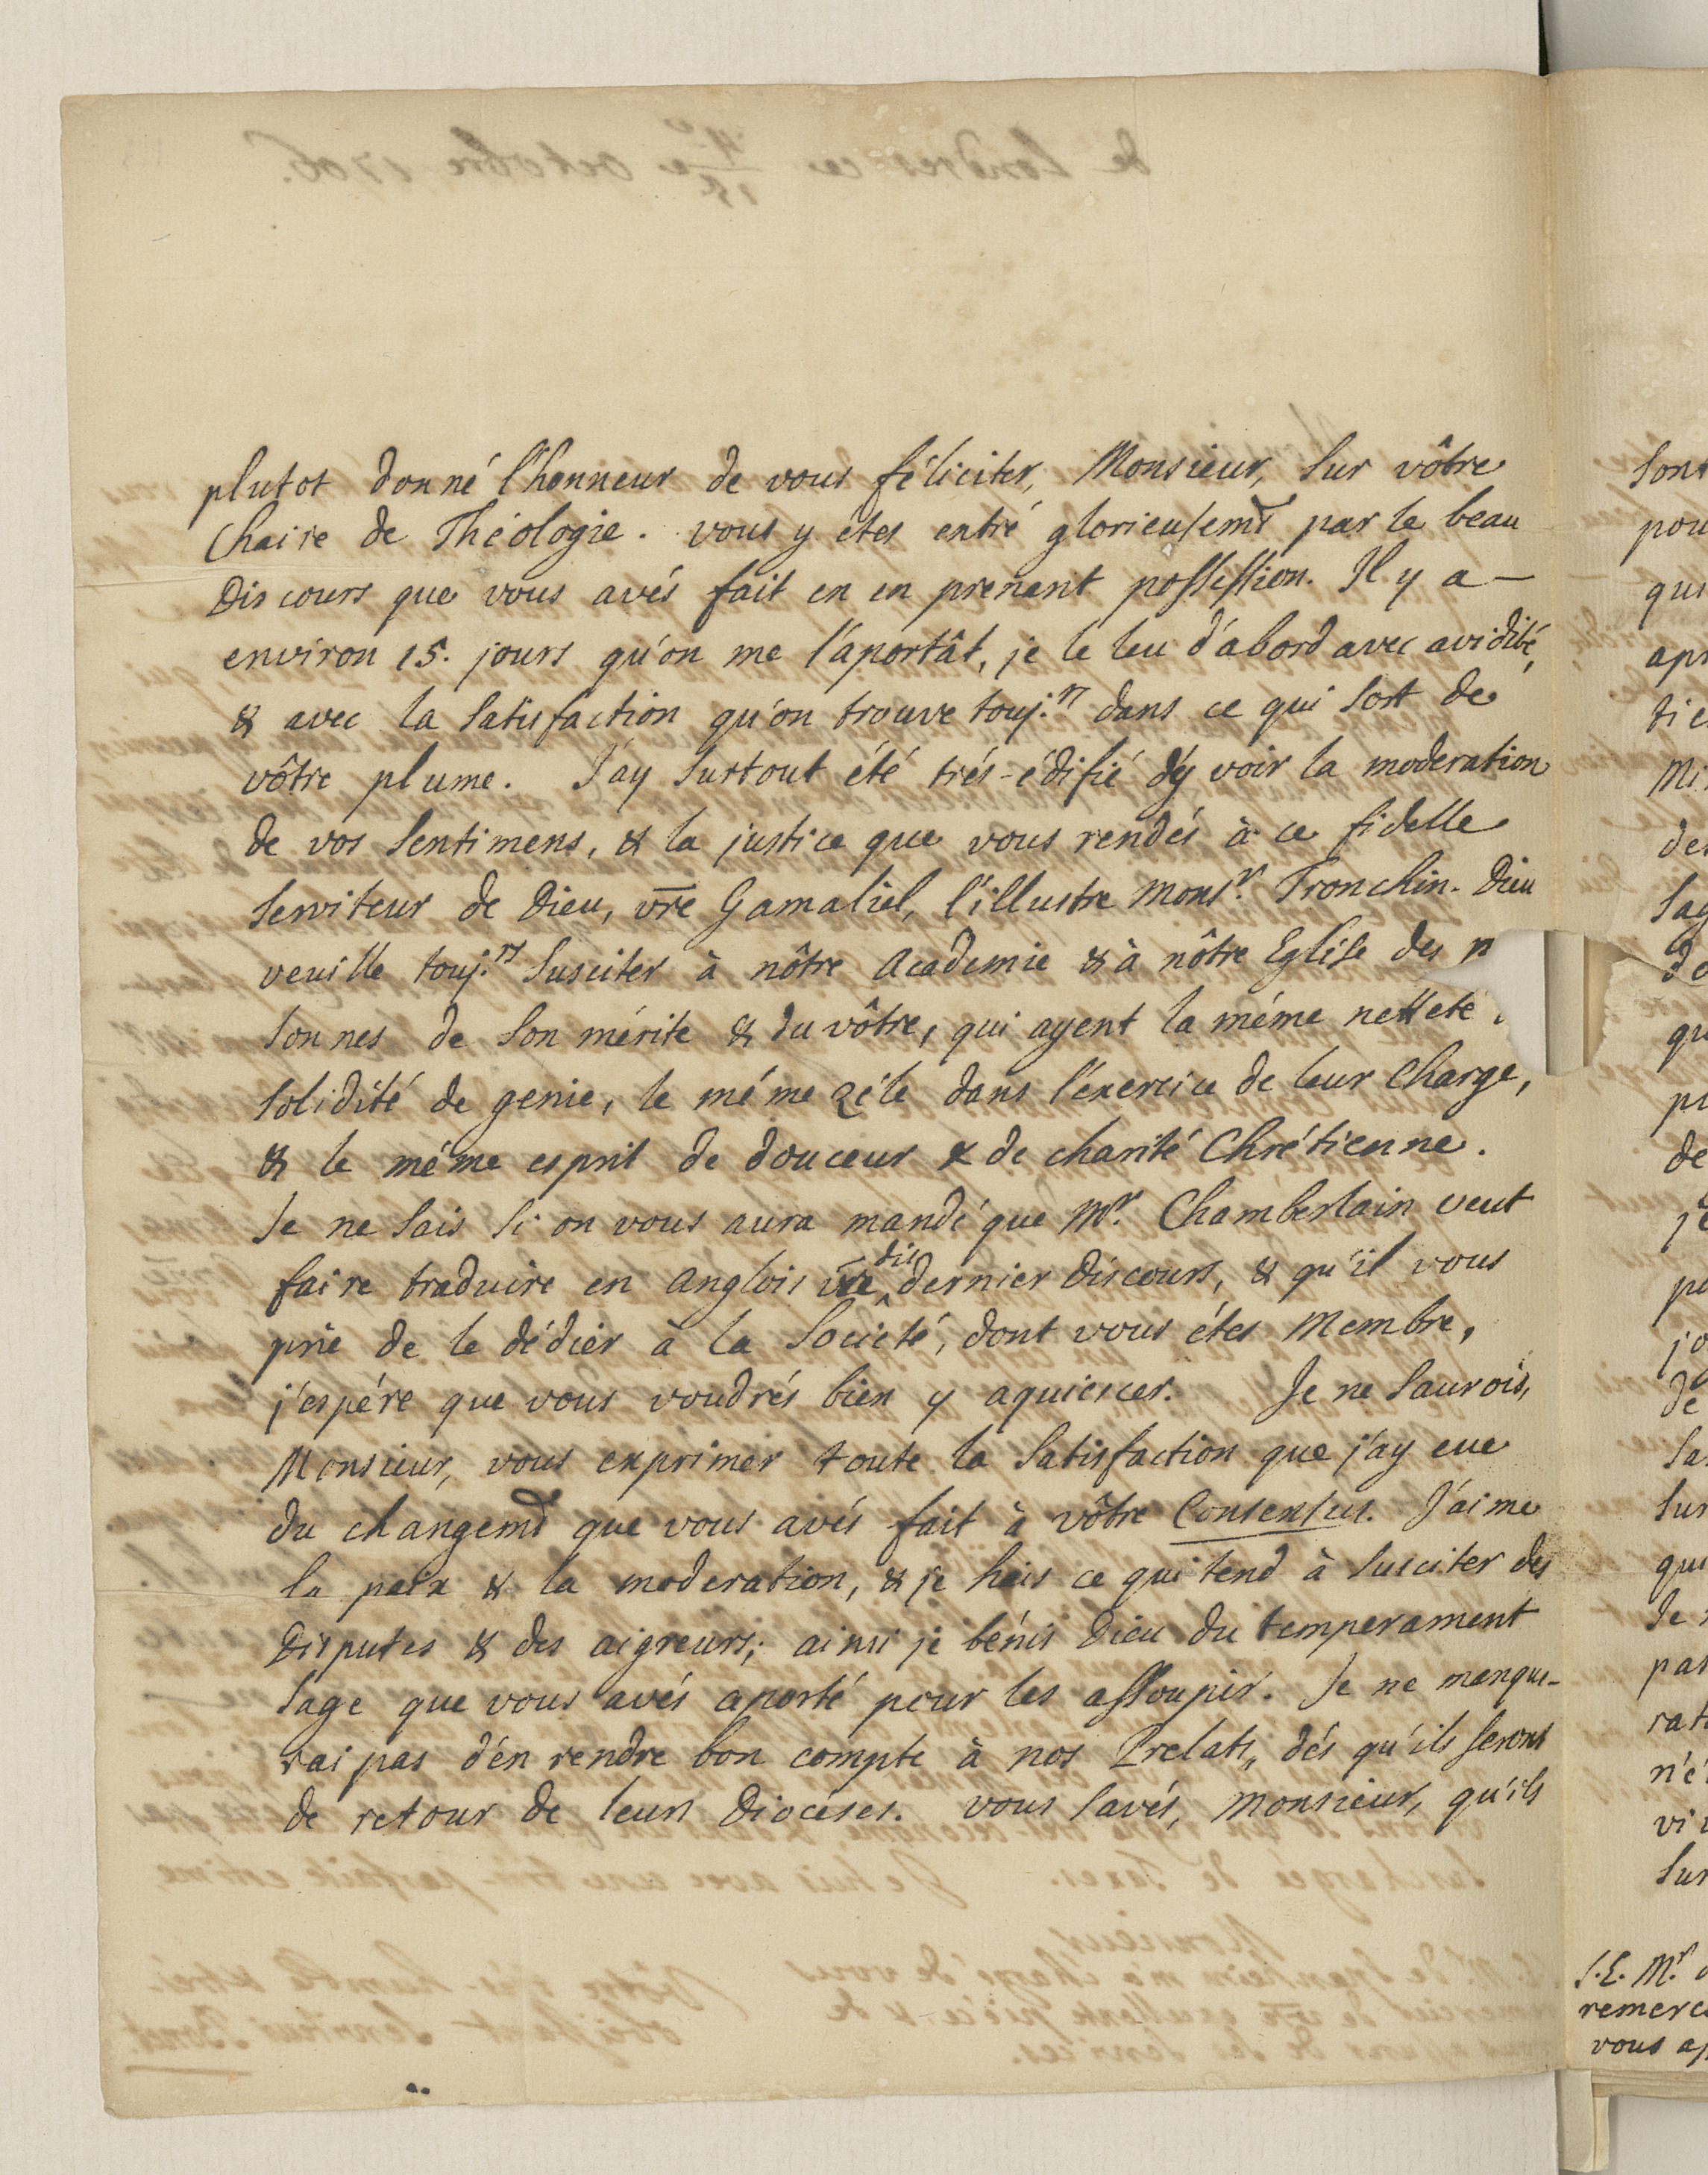 plutot donné l'honneur de vous féliciter, Monsieur, sur vôtre
Chaire de Théologie. vous y étes entré glorieusemt par le beau
Discours que vous avés fait en en prenant possession. Il y a –
environ 15. jours qu'on me l'áportât, je le leu d'abord avec avidité,
& avec la satisfaction qu'on trouve touj.rs dans ce qui sort de
vôtre plume. J'ay surtout été trés-édifié d'y voir la moderation
de vos sentimens, & la justice que vous rendés à ce fidelle
serviteur de Dieu, vre Gamaliel, l'illustre Monsr. Tronchin. Dieu
veuille touj.rs susciter à nôtre Academie & à nôtre Eglise des
sonnes de son mérite & du vôtre, qui ayent la méme netteté
solidité de genie, le méme zéle dans l'éxercice de leur charge,
& le méme esprit de douceur & de charité Chrétienne.
Je ne sais si on vous aura mandé que Mr. Chamberlain veut
faire traduire en Anglois vre dit dernier Discours, & qu'il vous
prie de le dédiér à la Societé, dont vous étes Membre,
j'espére que vous voudrés bien y aquiescer. Je ne saurois,
Monsieur, vous exprimer toute la satisfaction que j'ay eue
du changemt que vous avés fait à vôtre Consensus. J'aime
la paix & la moderation, & je hais ce qui tend à susciter des
Disputes & des aigreurs; ainsi je bénis Dieu du temperament
sage que vous avés aporté pour les assoupir. Je ne manque-
rai pas d'én rendre bon compte à nos Prelats, dés qu'ils seront
de retour de leurs Dioceses. vous savés, Monsieur, qu'ils
sont
pou
qui
apr
tie
Mi
des
sag
de
qu
pr
de
je
pe
jo
De
sa
sur
qui
Je
pas
rat
n'é
vi
sur
S.E. Mr.
remerc
vous ap